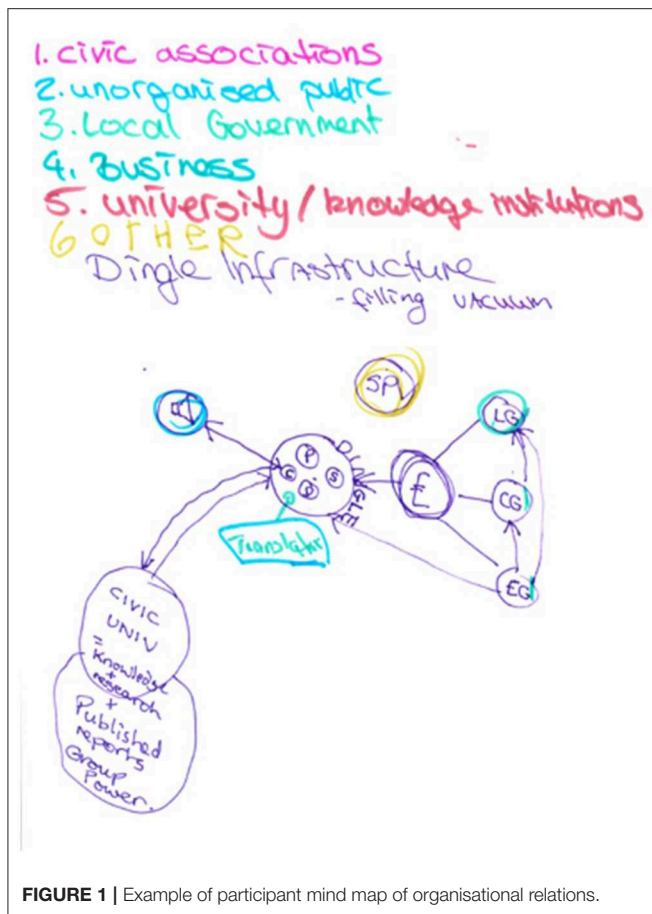 1. civic associations
2. unorganised public
3. Local Government
4. Business
5. university / knowledge institutions
6 OTHER
Dingle Infrastructure
- filling vacuum
SP
LG
DINGLE
P
S
C
£
CG
Translator
EG
CIVIC
UNIV
= Knowledge
+
research
+
Published
reports
Group
Power.
FIGURE 1 | Example of participant mind map of organisational relations.